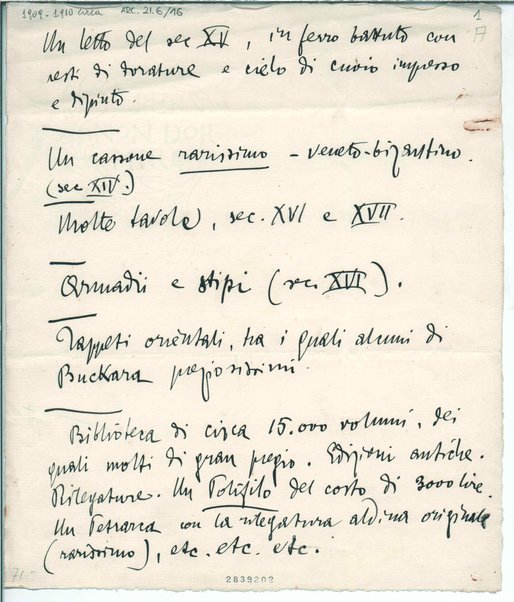 1909-1910 circa ARC. 21.6/16
1
A
Un letto del sec XV, in ferro battuto con
resti di dorature e cielo di cuoio impresso
e dipinto.
Un cassone rarissimo - veneto-bizantino.
(sec XIV.)
Molte tavole, sec. XVI e XVII.
Armadii e stipi (sec. XVI).
Tappeti orientali, tra i quali alcuni di
Buckara pregiosissimi.
Biblioteca di circa 15.000 volumi, dei
quali molti di gran pregio. Edizioni antiche.
Rilegature. Un Polifilo del costo di 3000 lire.
Un Petrarca con la rilegatura aldina originale
(rarissimo), etc. etc. etc.
71
2839202